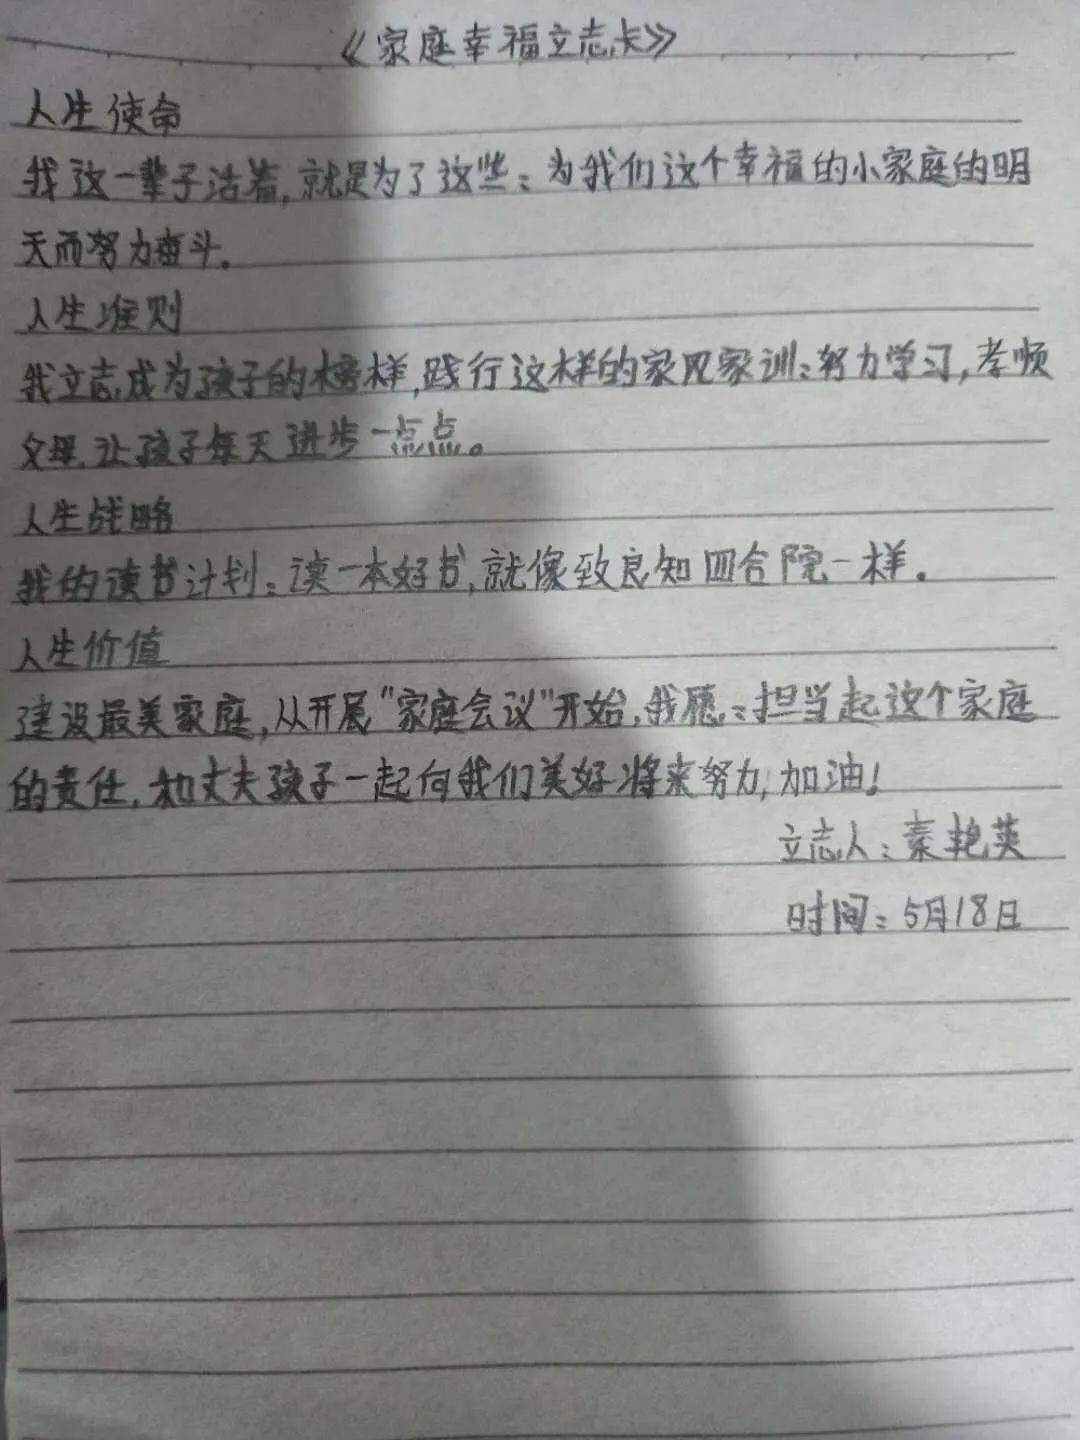 《家庭幸福立志卡》
人生使命
我这一辈子活着,就是为了这些:为我们这个幸福的小家庭的明
天而努力奋斗。
人生准则
我立志成为孩子的榜样,践行这样的家风家训:努力学习,孝顺
父母,让孩子每天进步一点点。
人生战略
我的读书计划:读一本好书,就像致良知四合院一样。
人生价值
建设最美家庭,从开展"家庭会议"开始,我愿:担当起这个家庭
的责任,和丈夫孩子一起向我们美好将来努力,加油!
立志人:秦艳英
时间:5月18日